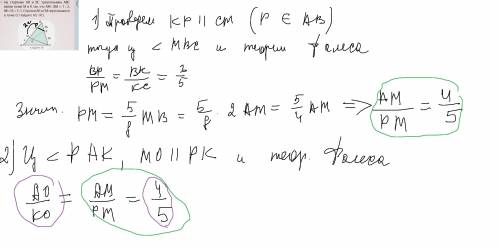 1) Проведем KP || CM (P ∈ AB)
тогда ∠ MBC и теории Фалеса
BP/PM = BK/KC = 3/5
Значит. PM = 5/8 MB = 5/8 · 2 AM = 5/4 AM => AM/PM = 4/5
2) Ц < PAK, MO || PK и теор. Фалеса
AO/KO = AM/PM = 4/5